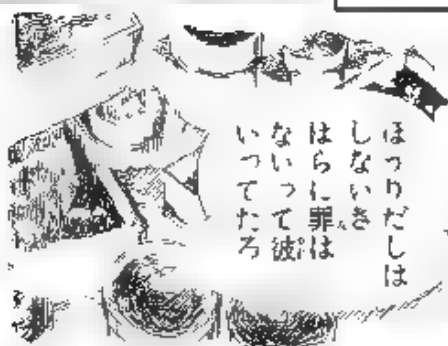 ほうりだしは
しないさ
はらに罪は
ないって彼
いってたろ